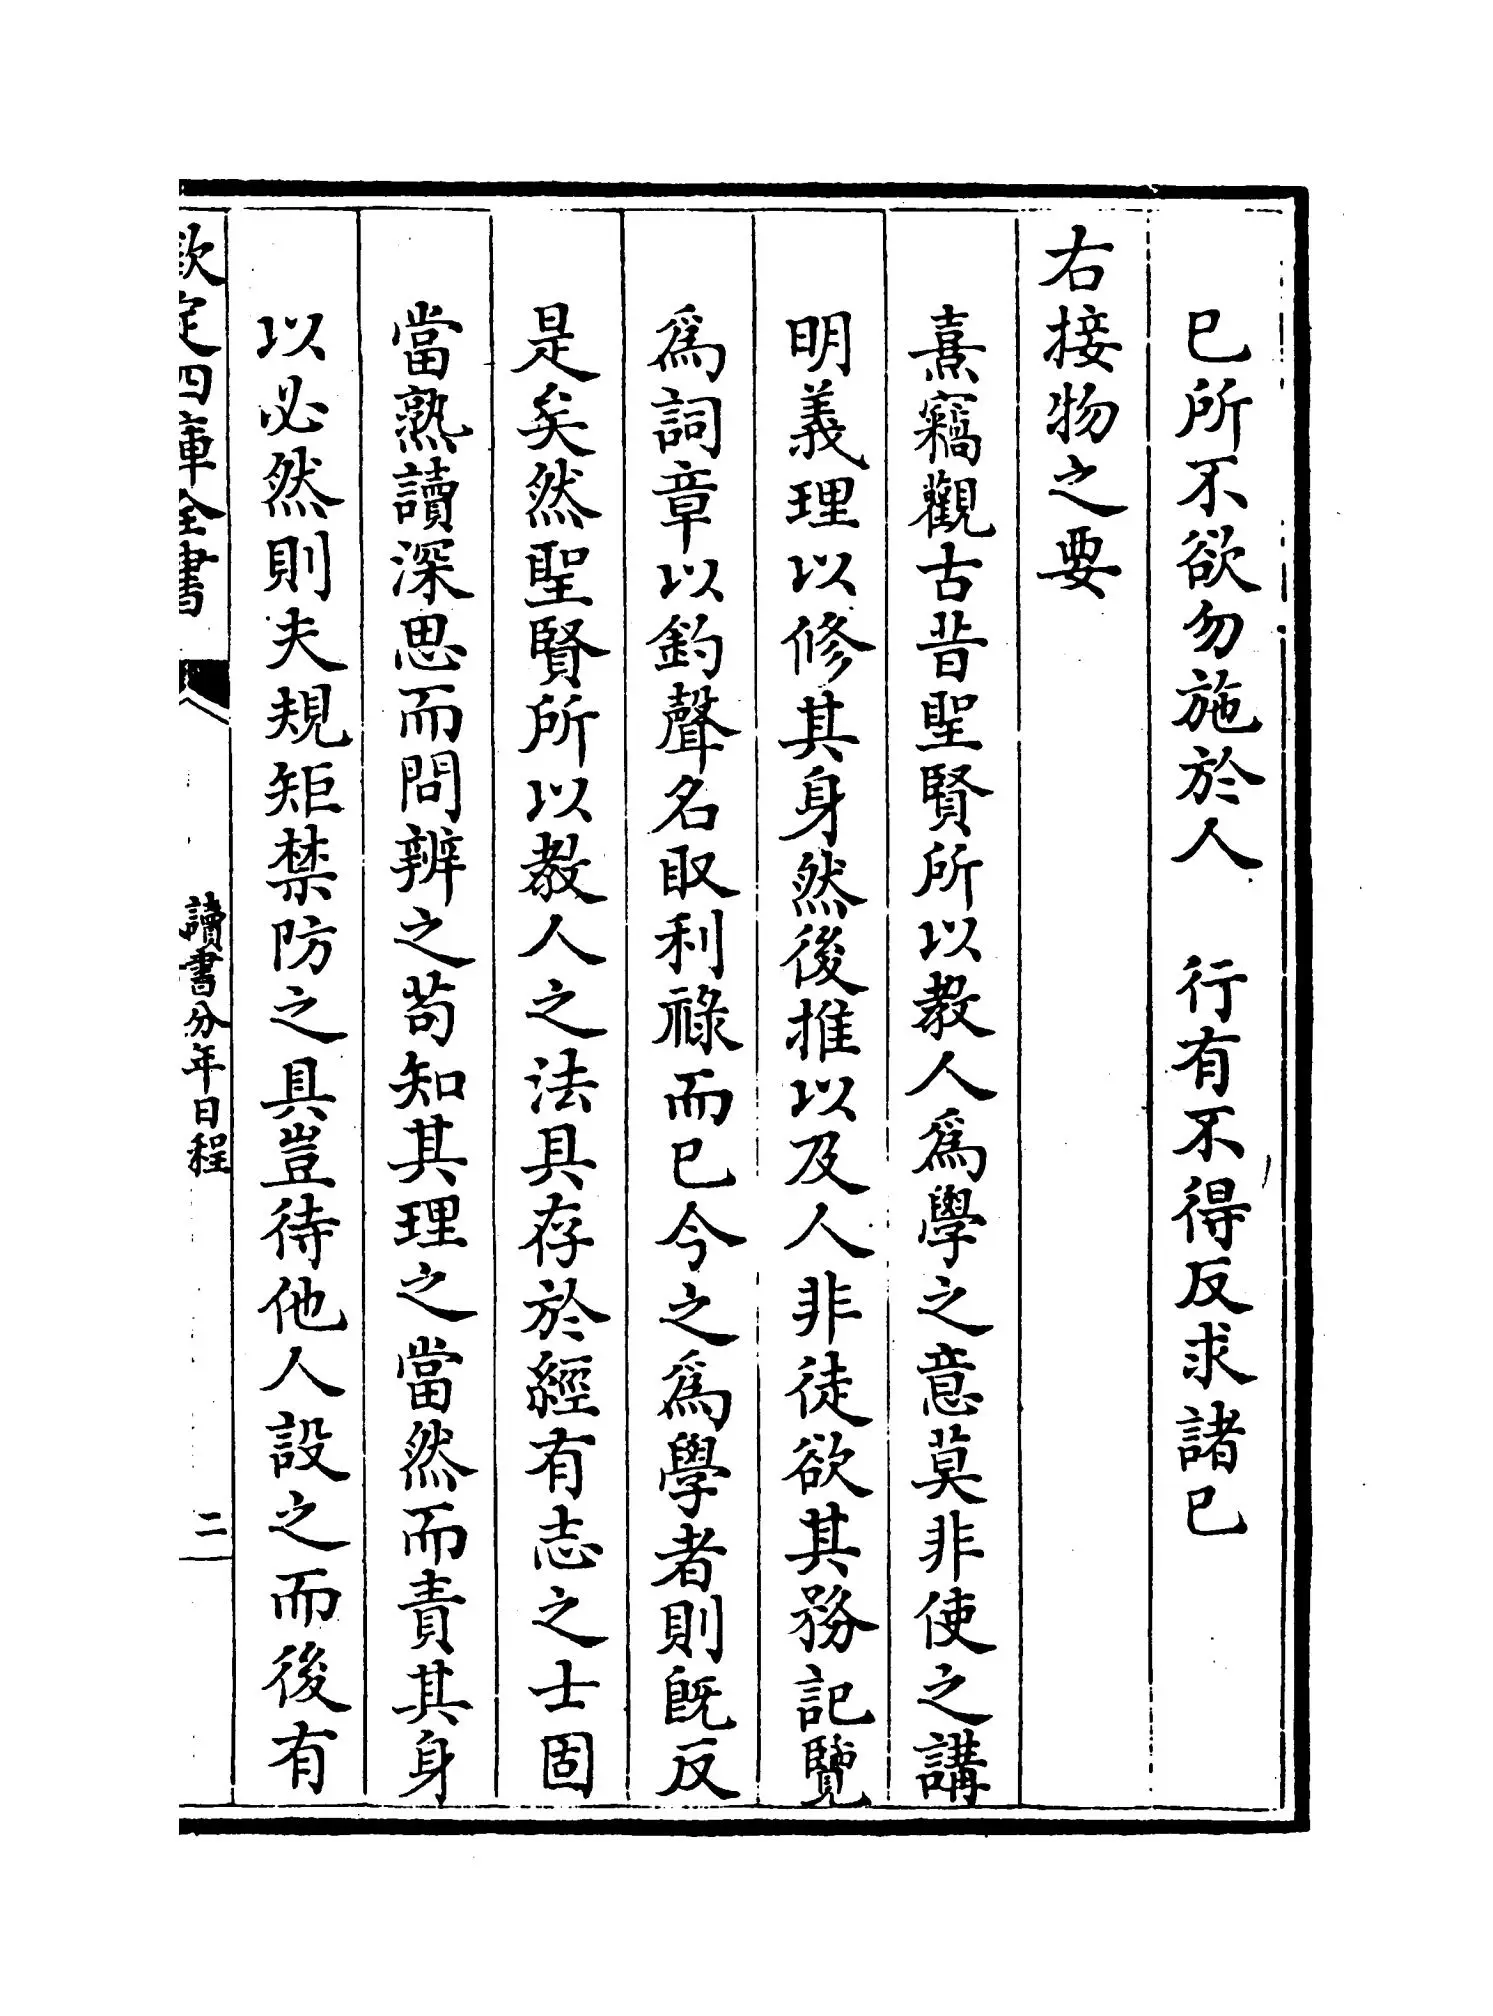 己所不欲勿施於人　行有不得反求諸己
右接物之要
熹竊觀古昔聖賢所以教人爲學之意莫非使之講
明義理以修其身然後推以及人非徒欲其務記覽
爲詞章以釣聲名取利祿而已今之爲學者則既反
是矣然聖賢所以教人之法具存於經有志之士固
當熟讀深思而問辨之苟知其理之當然而責其身
以必然則夫規矩禁防之具豈待他人設之而後有
欽定四庫全書
讀書分年日程
二